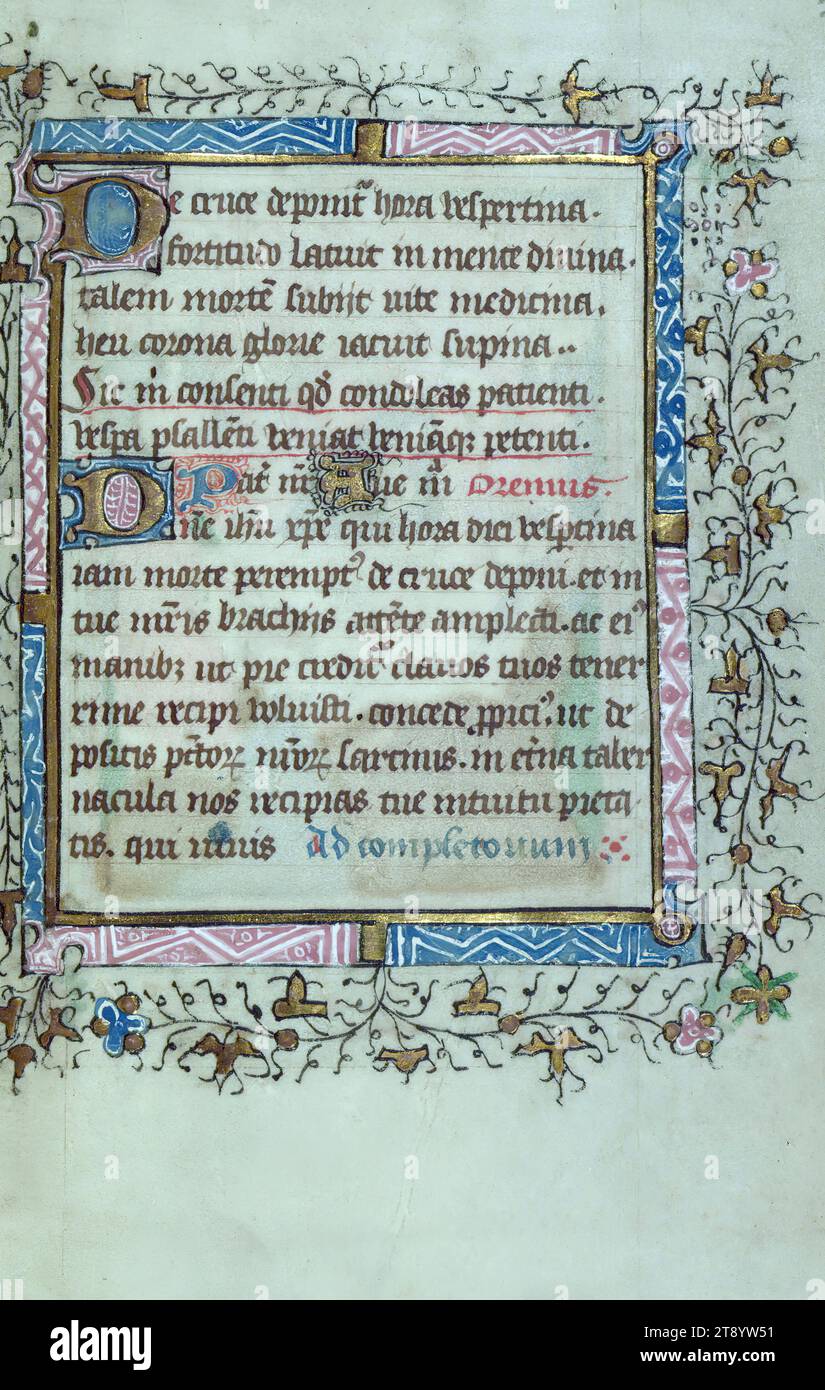 De cruce deponit᷑ hora vespertina.
fortitudo latuit in mente diuina.
talem mortē subijt uite medicina.
heu corona glorie iacuit supina..
Sic m̄ consenti qd̄ condoleas patienti.
vespa psallēti veniat veniāqꝫ petenti.
Pat̄ nr̄ Aue m̄ Oremus.
Dn̄e ihū xp̄e qui hora diei vesꝑtina
iam morte perempt᷒ de cruce deponi. et in
tue mr̄is brachijs attēte amplecti. ac ei᷒
manibꝫ ut pie credit᷑ clauos tuos tener
rime recipi voluisti. concede ꝓpici᷒. ut de
positis pc̄torꝝ nr̄orꝝ sarcinis. in et̄na taber
nacula nos recipias tue intuitu pieta
tis. qui uiuis Ad completorium
alamy
alamy
Image ID: 2T8YW51
www.alamy.com